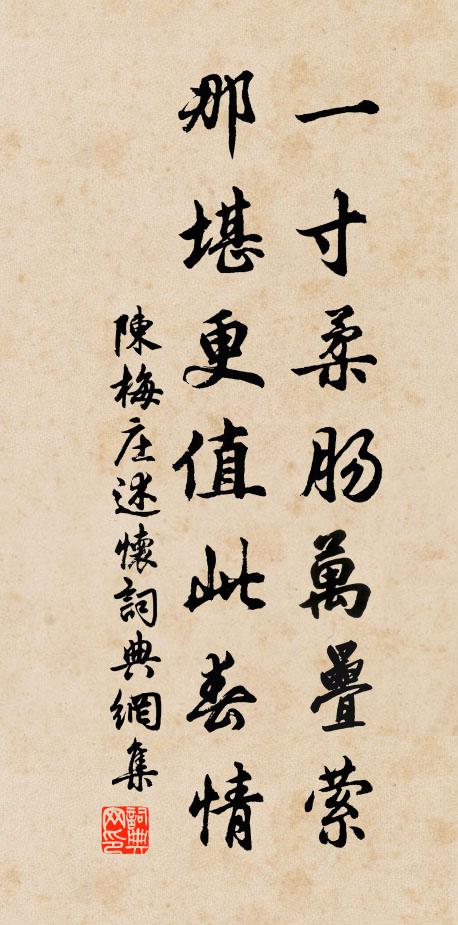 一寸柔肠萬疊縈
那堪更值此春情
陳梅庄述懷詞典網集
詞典网印